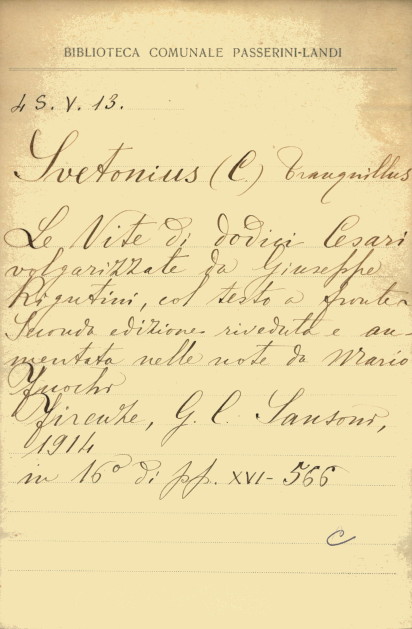 BIBLIOTECA COMUNALE PASSERINI-LANDI
4 S. V. 13.
Svetonius (C.) Tranquillus
Le Vite di dodici Cesari
volgarizzate da Giuseppe
Rigutini, col testo a fronte
Seconda edizione riveduta e au-
mentata nelle note da Mario
Fuochi
Firenze, G. C. Sansoni,
1914
in 16° di pp. XVI-566
C